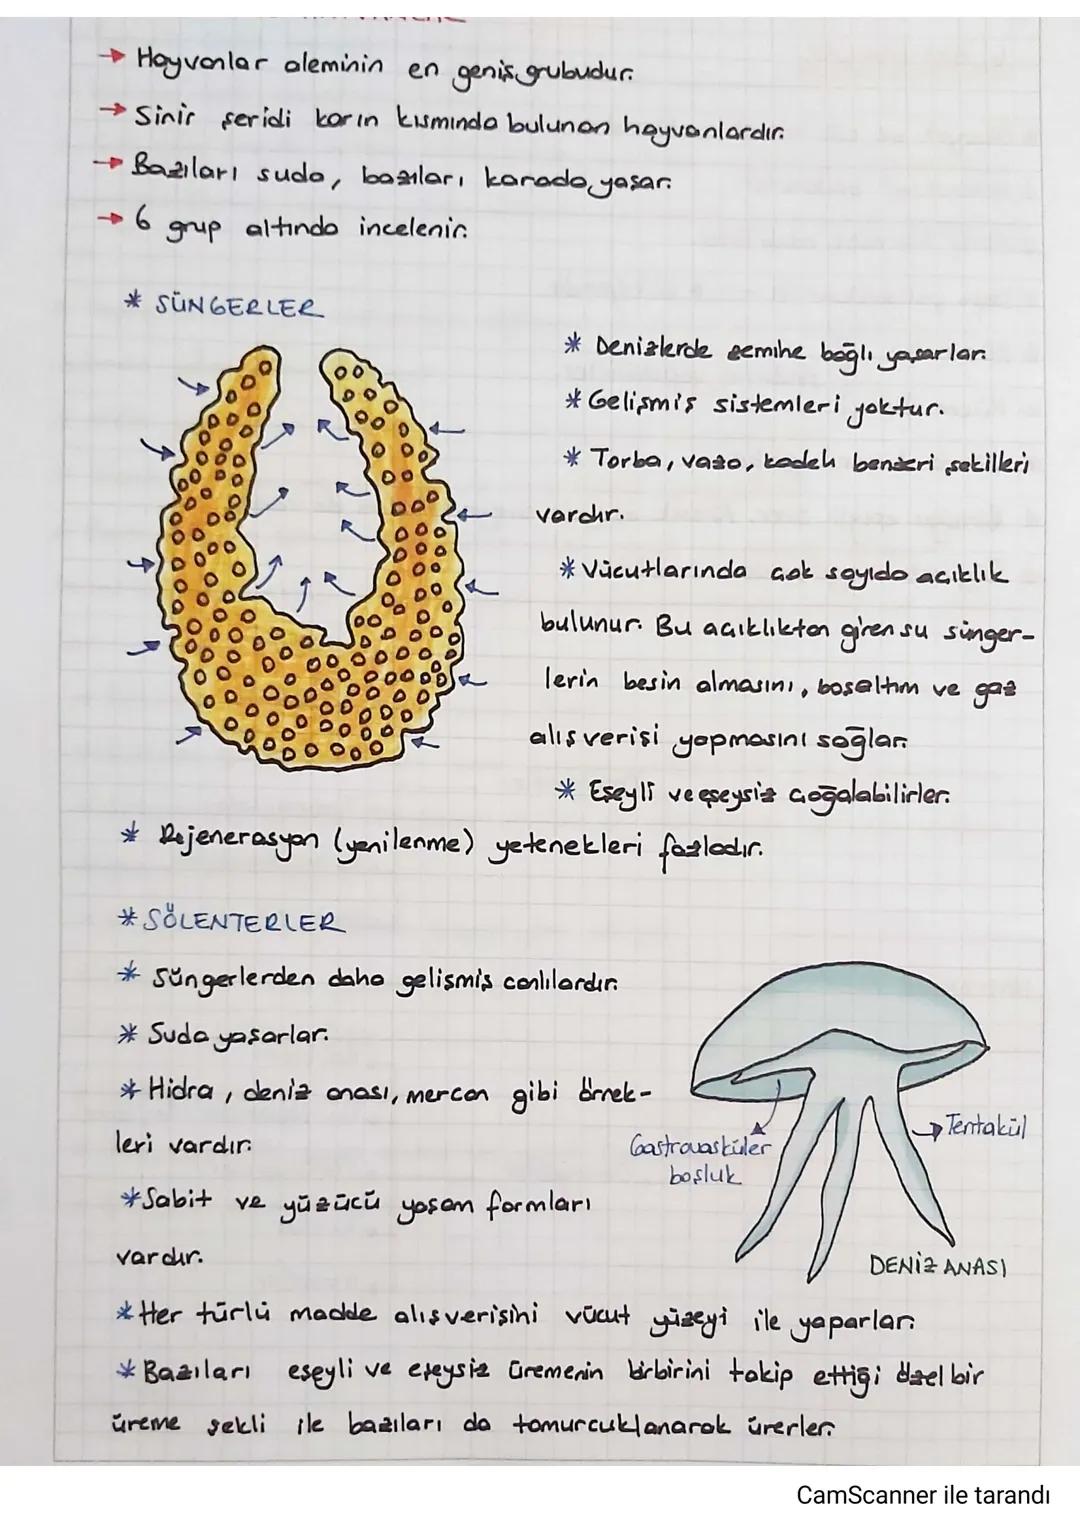 → Hayvanlar aleminin en geniş grubudur.
→ Sinir şeridi karın kısmında bulunan hayvanlardır.
→ Bazıları suda, bazıları karada yaşar.
→ 6 grup altında incelenir.
* SÜNGERLER
* Denizlerde zemine bağlı yaşarlar.
* Gelişmiş sistemleri yoktur.
* Torba, vazo, kadeh benzeri şekilleri
vardır.
* Vücutlarında çok sayıda açıklık
bulunur. Bu açıklıktan giren su sünger-
lerin besin almasını, boşaltım ve gaz
alış verişi yapmasını sağlar.
* Eşeyli ve eşeysiz çoğalabilirler.
* Rejenerasyon (yenilenme) yetenekleri fazladır.
* SÖLENTERLER
* Süngerlerden daha gelişmiş canlılardır.
* Suda yaşarlar.
* Hidra, deniz anası, mercan gibi örnek-
leri vardır.
Gastrovasküler
boşluk
Tentakül
* Sabit ve yüzücü yaşam formları
vardır.
DENİZ ANASI
* Her türlü madde alışverişini vücut yüzeyi ile yaparlar.
* Bazıları eşeyli ve eşeysiz üremenin birbirini takip ettiği özel bir
üreme şekli ile bazıları da tomurcuklanarak ürerler.
CamScanner ile tarandı